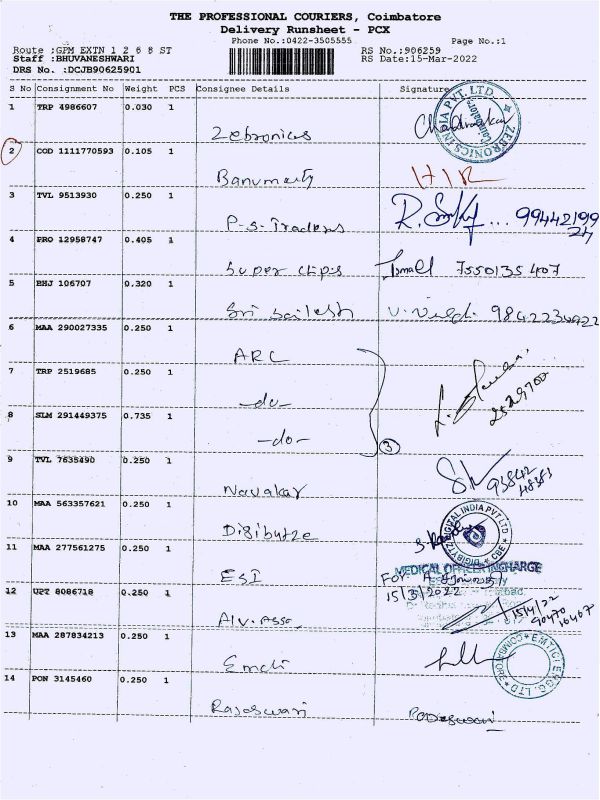 THE PROFESSIONAL COURIERS, Coimbatore
Delivery Runsheet - PCX
Phone No.:0422-3505555 Page No.:1
Route :GPM EXTN 1 2 6 8 ST RS No.:906259
Staff :BHUVANESHWARI RS Date:15-Mar-2022
DRS No. :DCJB90625901
S No Consignment No Weight PCS Consignee Details Signature
1 TRP 4986607 0.030 1
Zebronics
ZEBRONICS INDIA PVT. LTD. Coimbatore
2 COD 1111770593 0.105 1
Banumathy
3 TVL 9513930 0.250 1
P.S. Traders 9944219924
4 PRO 12958747 0.405 1
Super chips Ismail 7550135407
5 BHJ 106707 0.320 1
Sri Sailesh 9842234922
6 MAA 290027335 0.250 1
ARC
7 TRP 2519685 0.250 1
-do-
8 SLM 291449375 0.735 1
-do-
3
9 TVL 7635490 0.250 1
Navakar 93842
10 MAA 563357621 0.250 1
Digibytze
DIGIBYTZ DIGITAL INDIA PVT LTD CBE
11 MAA 277561275 0.250 1
ESI
MEDICAL OFFICER INCHARGE
For
15/3/2022
12 UPT 8086718 0.250 1
Alv. Asso
13 MAA 287834213 0.250 1
Emdi
14 PON 3145460 0.250 1
Rajeswari